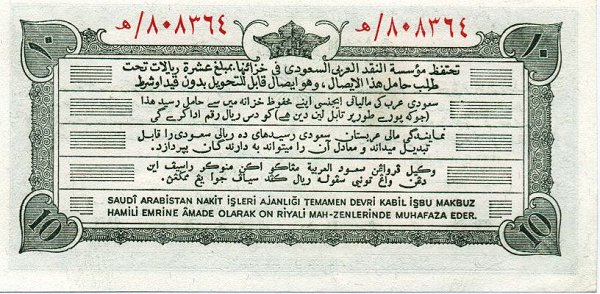 ٨٠٨٣٦٤/ه
٨٠٨٣٦٤/ه
١٠
١٠
تحتفظ مؤسسة النقد العربي السعودي في خزائنها بمبلغ عشرة ريالات تحت
طلب حامل هذا الايصال، وهو ايصال قابل للتحويل بدون قيد او شرط
سعودی عرب کی مالیاتی ایجنسی اپنے محفوظ خزانه میں سے حامل رسید هذا
(جو که پورے طور پر تابل لین دین هے) کو دس ریال رقم ادا کرے گی
نمایندگی مالی عربستان سعودی رسیدهای ده ریالی سعودی را قابل
تبدیل میداند و معادل آن را میتواند به دارندگان بپردازد.
وكيل
سعود العربية
اكن
اين
دڠن
ريال
SAUDÎ ARABİSTAN NAKİT İŞLERİ AJANLIĞI TEMAMEN DEVRİ KABİL İŞBU MAKBUZ
HAMİLİ EMRİNE ÂMADE OLARAK ON RİYALİ MAH-ZENLERİNDE MUHAFAZA EDER.
10
10